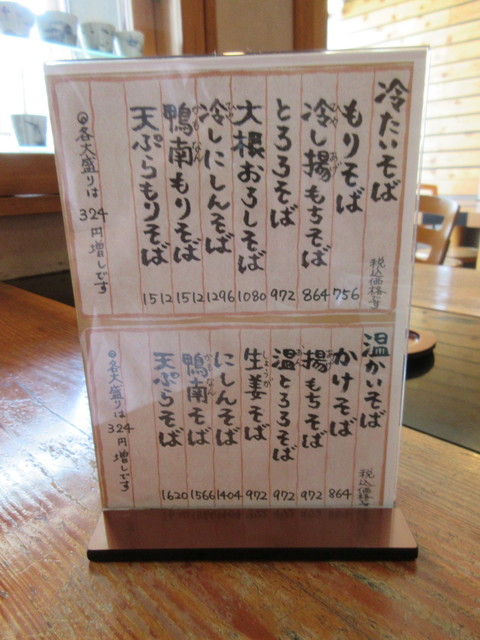 冷たいそば
税込価格
もりそば 756
冷し揚もちそば 864
とろろそば 972
大根おろしそば 1080
冷しにしんそば 1296
鴨南もりそば 1512
天ぷらもりそば 1512
各大盛りは324円増しです
温かいそば
税込価格
かけそば 864
揚もちそば 972
温とろろそば 972
生姜そば 972
しょうが
にしんそば 1404
鴨南そば 1566
天ぷらそば 1620
各大盛りは324円増しです